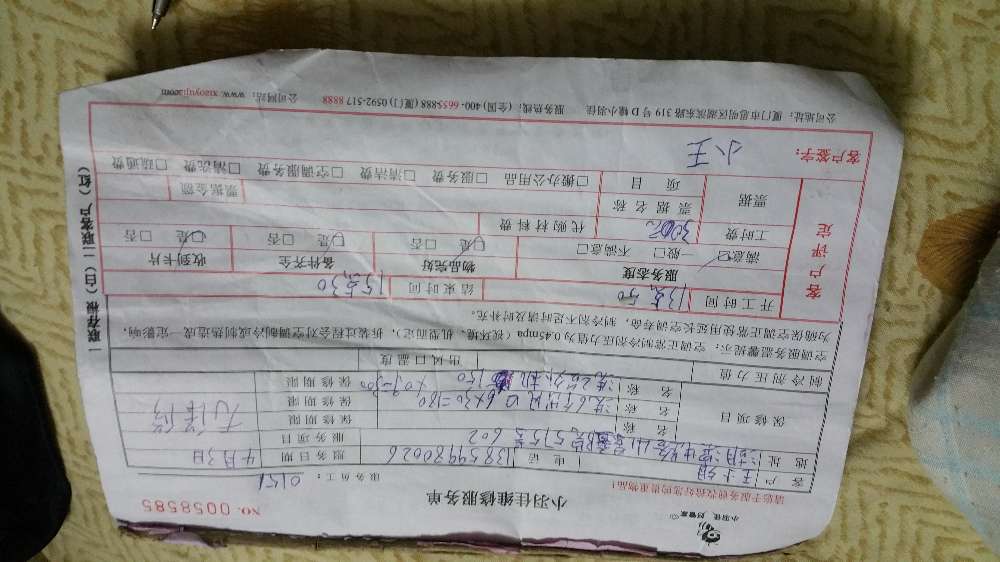 小羽佳 好管家
小羽佳维修服务单
NO. 0058585
请您于服务前收拾好您的贵重物品!
服务员工: 0151
客户 电话 13859980026 服务日期 4月3日
地址 602 服务项目
保修项目 名称 保修期限 无保修
名称 洗6个出风口 6×30=180 保修期限
名称 保修期限
制冷剂压力值 出风口温度
空调服务温馨提示:空调正常制冷剂压力值为0.45mpa(视环境、机型而定),拆装过程会对空调制冷或制热造成一定影响,
为确保空调正常使用延长空调寿命,制冷剂不足时请及时补充。
客户评定
开工时间 13点50 结束时间 15点30
服务态度 物品完好 备件齐全 收到卡片
满意□ 一般□ 不满意□ □是 □否 □是 □否 □是 □否
工时费 300元 代购材料费
票据 票据名称 票据金额
项目 □搬办公用品 □服务费 □清洁费 □空调服务费 □清洗费 □疏通费
客户签字: 小王
公司地址:厦门市思明区湖滨东路319号D幢小羽佳 服务热线:(全国)400-6655888(厦门)0592-517 8888 公司网站:www.xiaoyujia.com
一联存根(白)二联客户(红)